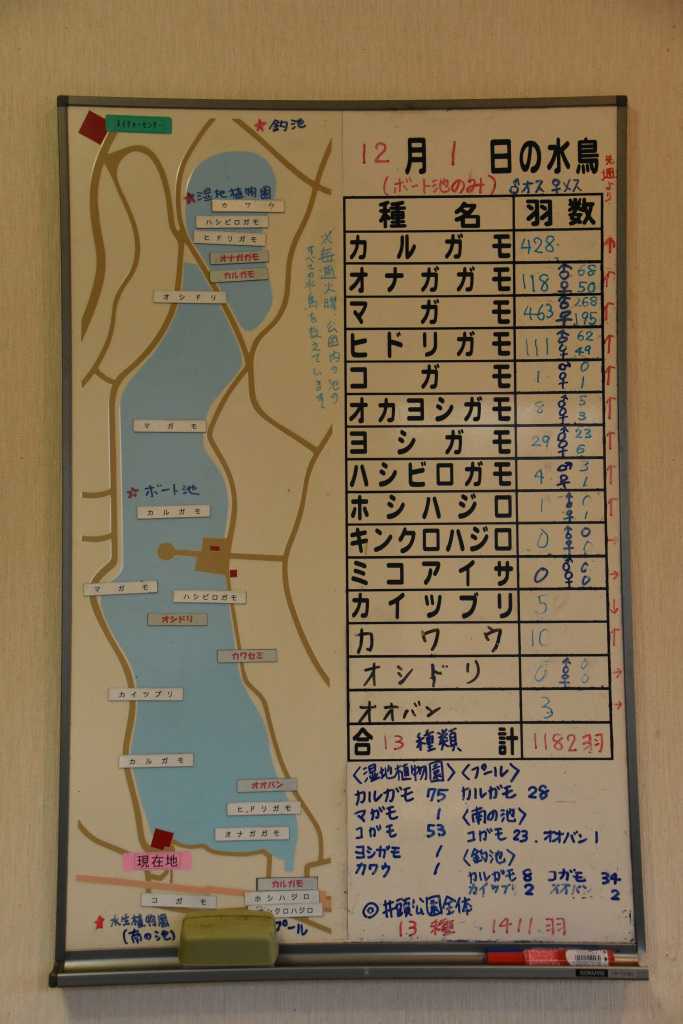 ネイチャーセンター
★釣池
★湿地植物園
カワウ
ハシビロガモ
ヒドリガモ
オナガガモ
カルガモ
オシドリ
※毎週火曜 公園内の池の
すべての水鳥を数えています
マガモ
★ボート池
カルガモ
マガモ
ハシビロガモ
オシドリ
カワセミ
カイツブリ
カルガモ
オオバン
ヒドリガモ
オナガガモ
現在地
カルガモ
コガモ
ホシハジロ
キンクロハジロ
★水生植物園
(南の池)
プール
12月1日の水鳥
先週より
(ボート池のみ) ♂オス ♀メス
種名 羽数
カルガモ 428 ↑
オナガガモ 118 ♂68 ♀50 ↑
マガモ 463 ♂268 ♀195 ↑
ヒドリガモ 111 ♂62 ♀49 ↑
コガモ 1 ♂0 ♀1 ↑
オカヨシガモ 8 ♂5 ♀3 ↑
ヨシガモ 29 ♂23 ♀6 ↑
ハシビロガモ 4 ♂3 ♀1 ↑
ホシハジロ 1 ♂0 ♀1 ↑
キンクロハジロ 0 ♂0 ♀0 →
ミコアイサ 0 ♂0 ♀0 →
カイツブリ 5 ↓
カワウ 10 ↑
オシドリ 0 ♂0 ♀0 →
オオバン 3 →
合 13 種類 計 1182羽
〈湿地植物園〉 〈プール〉
カルガモ 75 カルガモ 28
マガモ 1 〈南の池〉
コガモ 53 コガモ 23.オオバン 1
ヨシガモ 1 〈釣池〉
カワウ 1 カルガモ 8 コガモ 34
カイツブリ 2 オオバン 2
◎井頭公園全体
13種 1411羽
KOKUYO